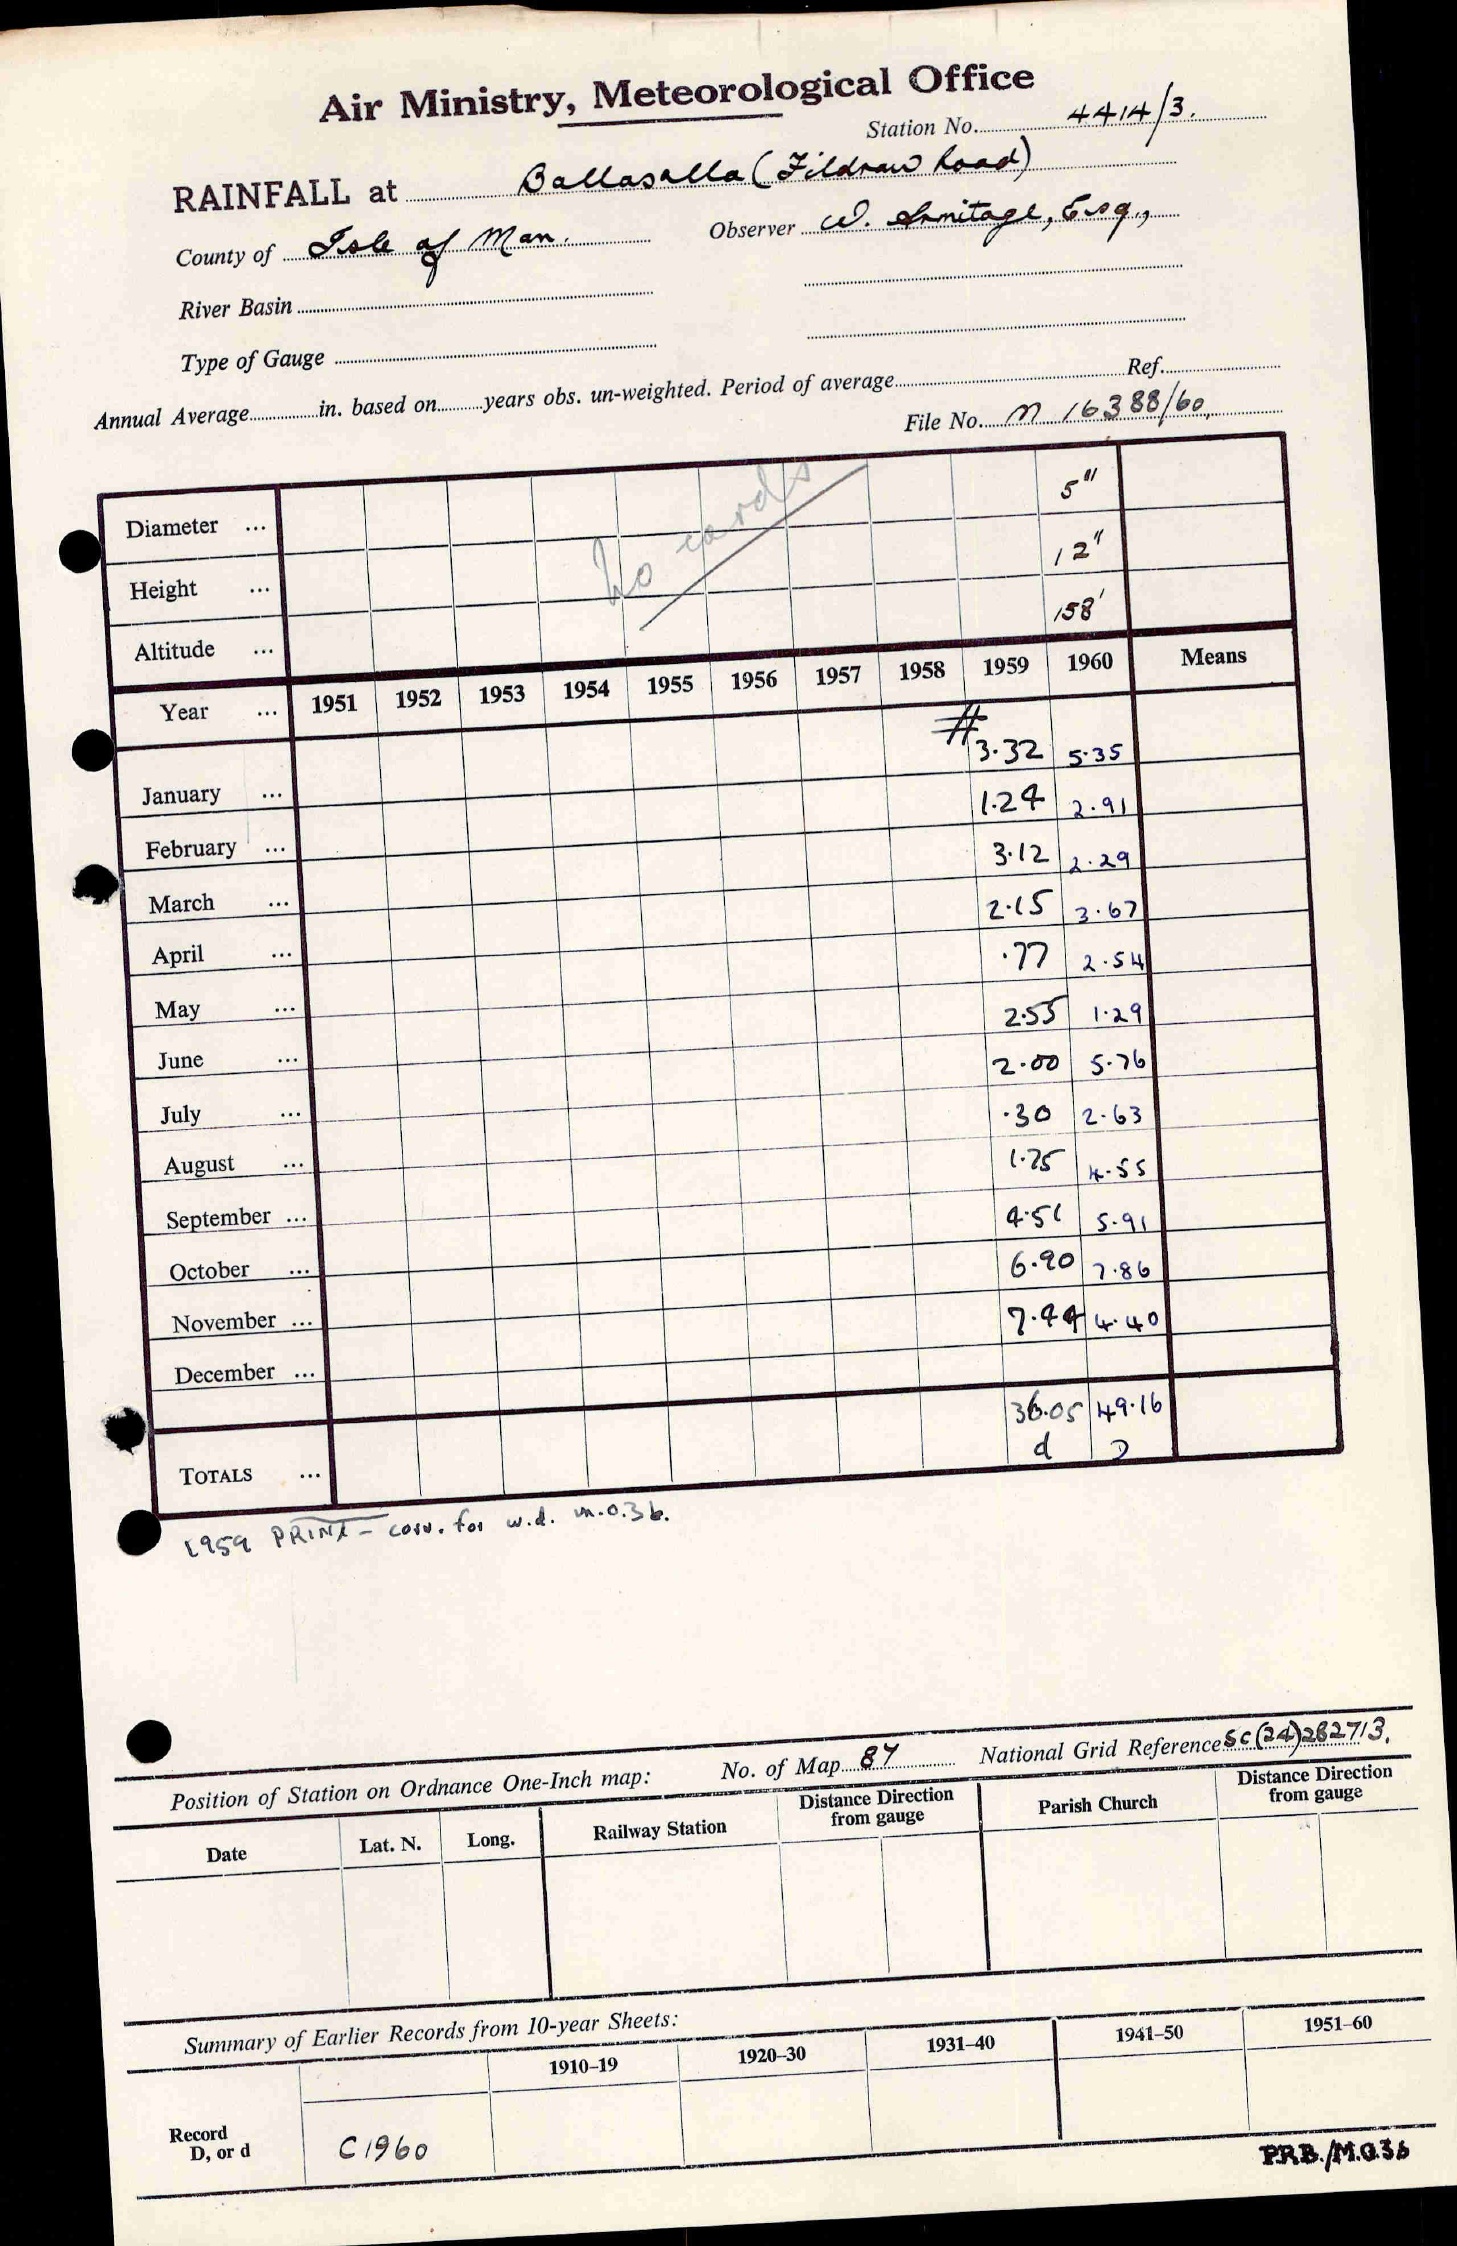 Air Ministry, Meteorological Office
Station No. 4414/3.
RAINFALL at Ballasalla (Fildraw Road)
County of Isle of Man. Observer W. Armitage, Esq.,
River Basin
Type of Gauge
Annual Average in. based on years obs. un-weighted. Period of average Ref.
File No. M 16388/60,
No cards
Diameter ... 5"
Height ... 12"
Altitude ... 158'
Year ... 1951 1952 1953 1954 1955 1956 1957 1958 1959 1960 Means
January ... # 3.32 5.35
February ... 1.24 2.91
March ... 3.12 2.29
April ... 2.15 3.67
May ... .77 2.54
June ... 2.55 1.29
July ... 2.00 5.76
August ... .30 2.63
September ... 1.75 4.55
October ... 4.51 5.91
November ... 6.90 7.86
December ... 7.44 4.40
TOTALS ... 36.05 49.16
d D
1959 PRINT - corr. for w.d. m.o.3b.
Position of Station on Ordnance One-Inch map: No. of Map 87 National Grid Reference SC(24)282713.
Date Lat. N. Long. Railway Station Distance Direction from gauge Parish Church Distance Direction from gauge
Summary of Earlier Records from 10-year Sheets:
1910–19 1920–30 1931–40 1941–50 1951–60
Record
D, or d C1960
P.R.B./M.O.3b